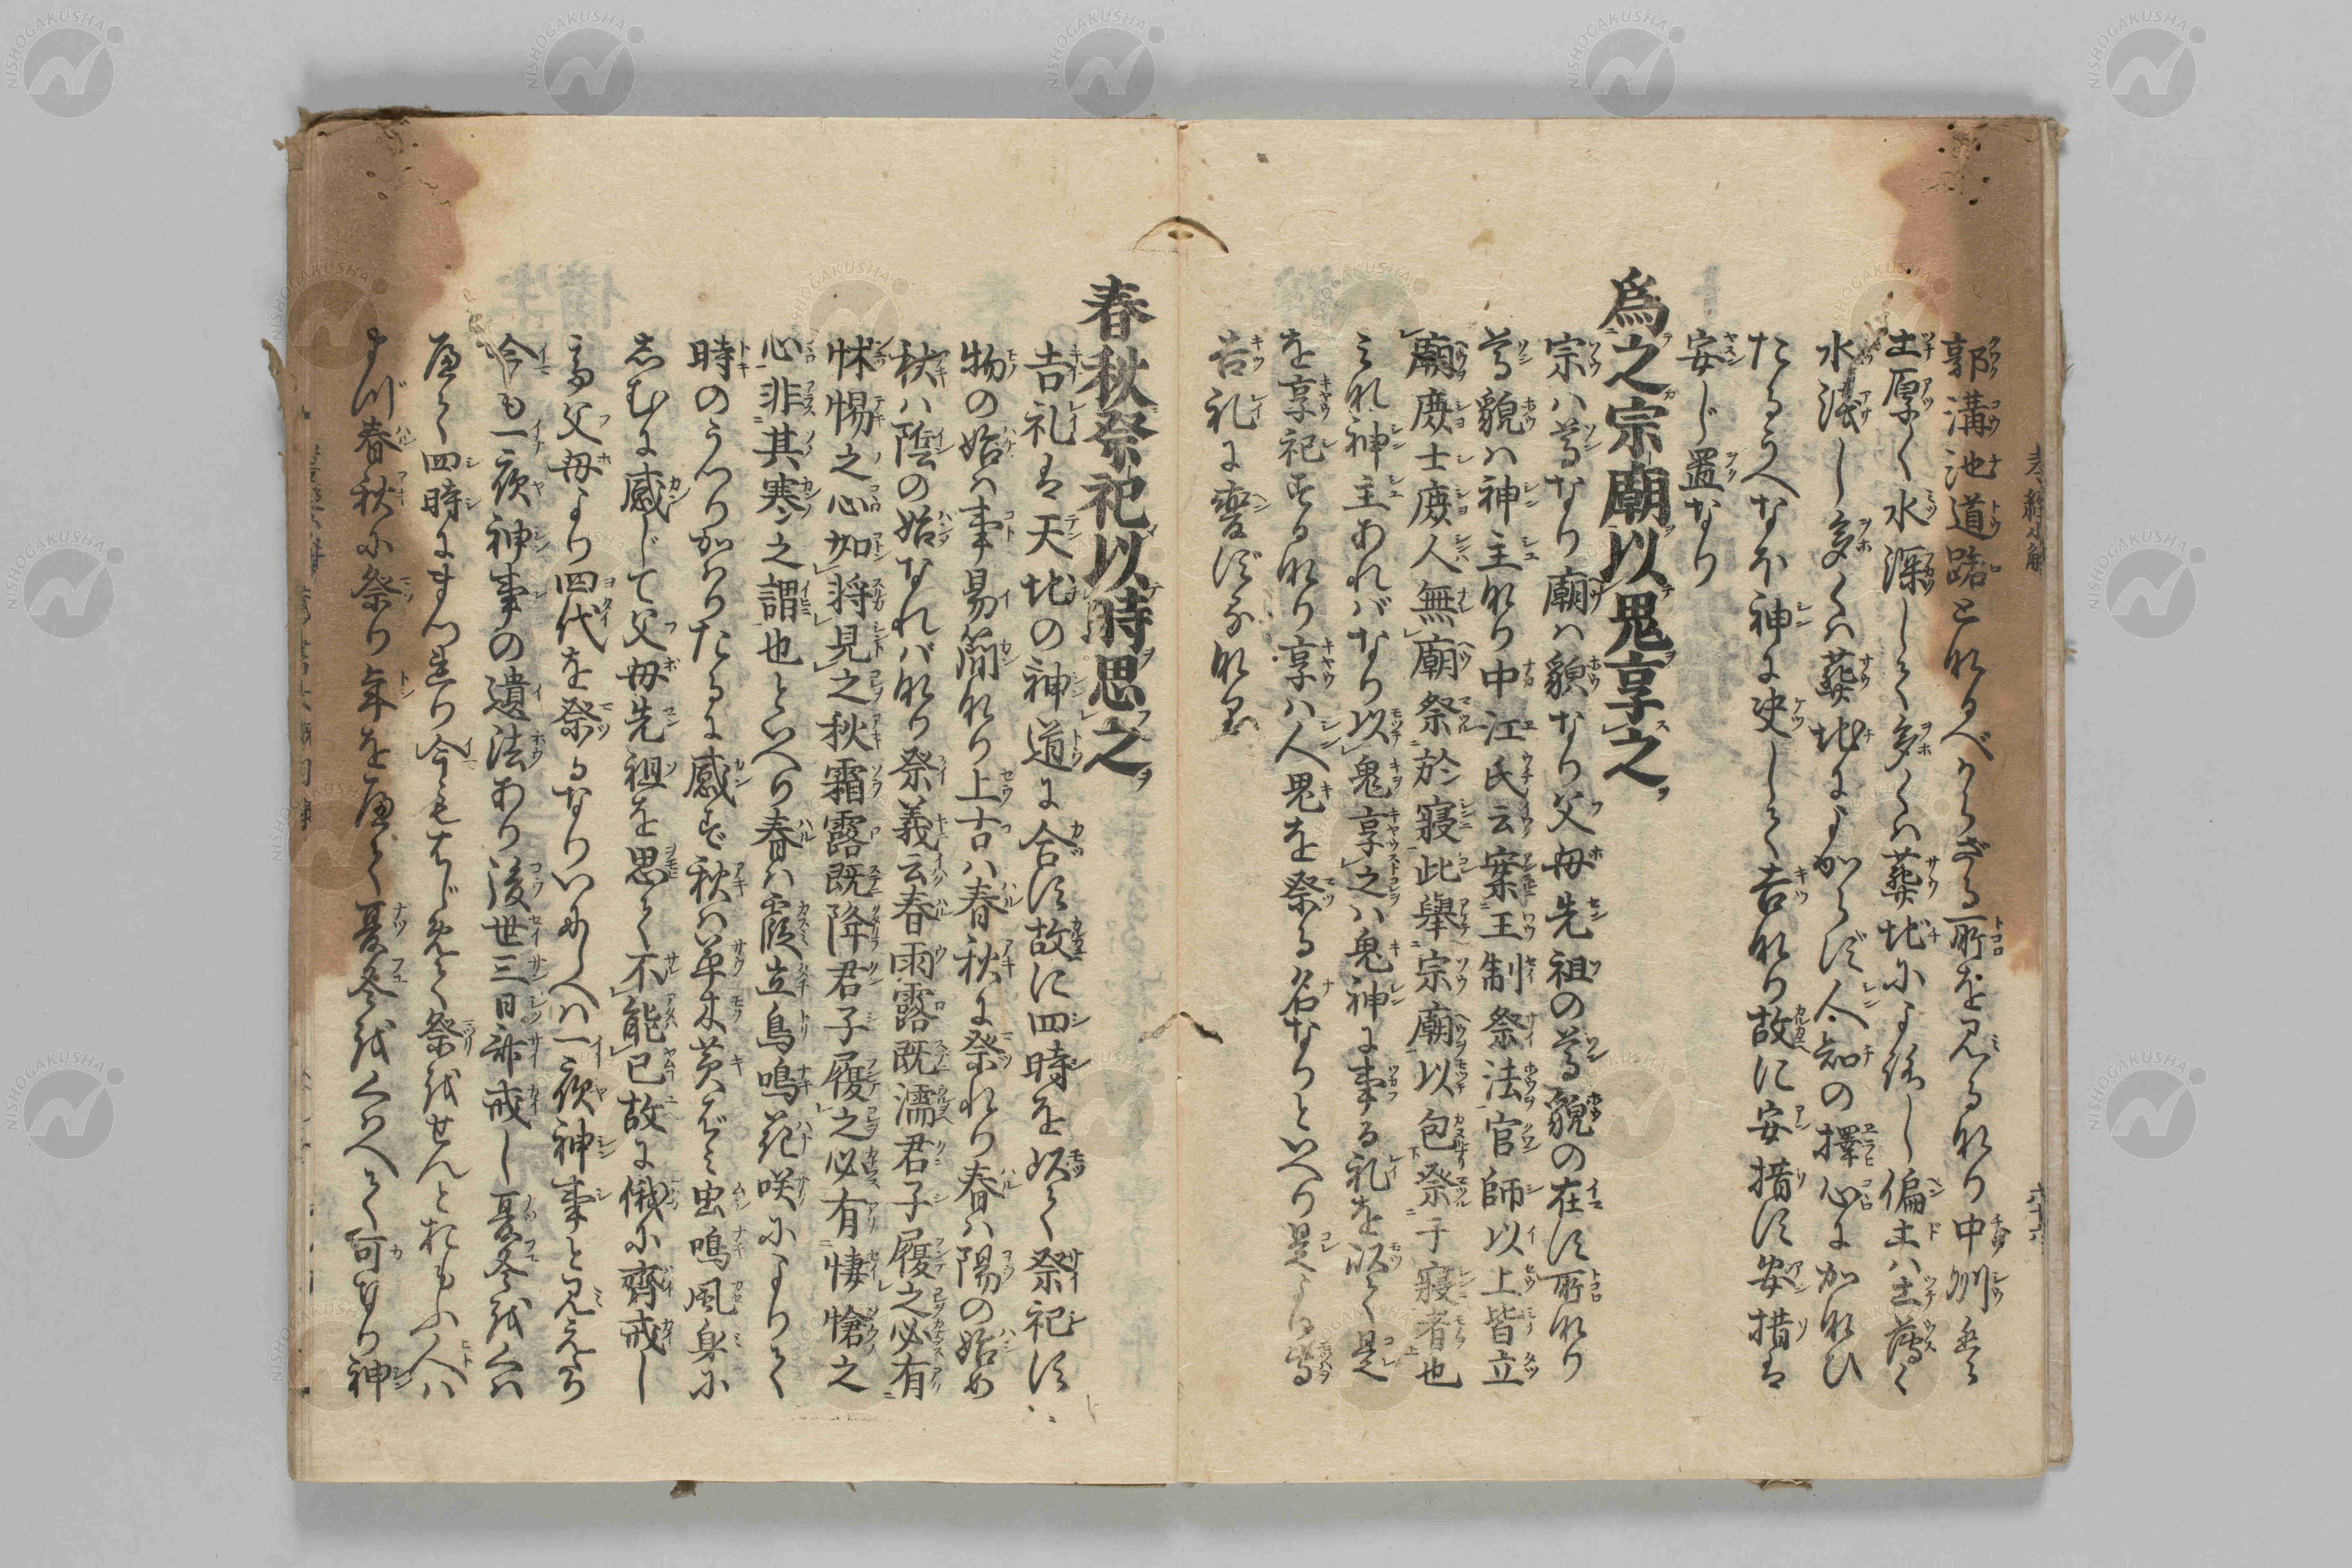 郭溝池道路となりへからざる所を見るなり中州は
土厚く水深しく多くハ葬地によろし偏土ハ土薄く
水浅し多くハ葬地によからず人知の擇心にかなひ
たるうへなを神に决しく吉なり故に安措す安措は
安じ置なり
爲之宗廟以鬼享之
宗ハ尊なり廟ハ貌なり父母先祖の尊貌の在す所なり
尊貌ハ神主なり中江氏云案王制祭法官師以上皆立
廟庻士庻人無廟祭於寢此舉宗廟以包祭于寢者也
これ神主あれバなり以鬼享之ハ鬼神に事る礼を以く是
を享祀するなり享ハ人鬼を祭る名なりといへり是より
吉礼に變ずるなり
春秋祭祀以時思之
吉礼は天地の神道に合す故に四時を以く祭祀す
物の始ハ事易簡なり上古ハ春秋に祭れり春ハ陽の始め
秋ハ陰の始なれバなり祭義云春雨露既濡君子履之必有
怵惕之心如將見之秋霜露既降君子履之必有悽愴之
心非其寒之謂也といへり春ハ霞立鳥鳴花咲によりく
時のうつりかハりたるに感ず秋ハ草木黄ばミ虫鳴風身に
しむに感じて父母先祖を思く不能已故に俄に齊戒し
高父母より四代を祭るなりいにしへハ一夜神事と見えたり
今も一夜神事の遺法あり後世三日齋戒し夏冬をくハ
へく四時にまつれり今もはじめく祭をせんとおもふ人ハ
まづ春秋に祭り年を歴く夏冬をくハへく可なり神